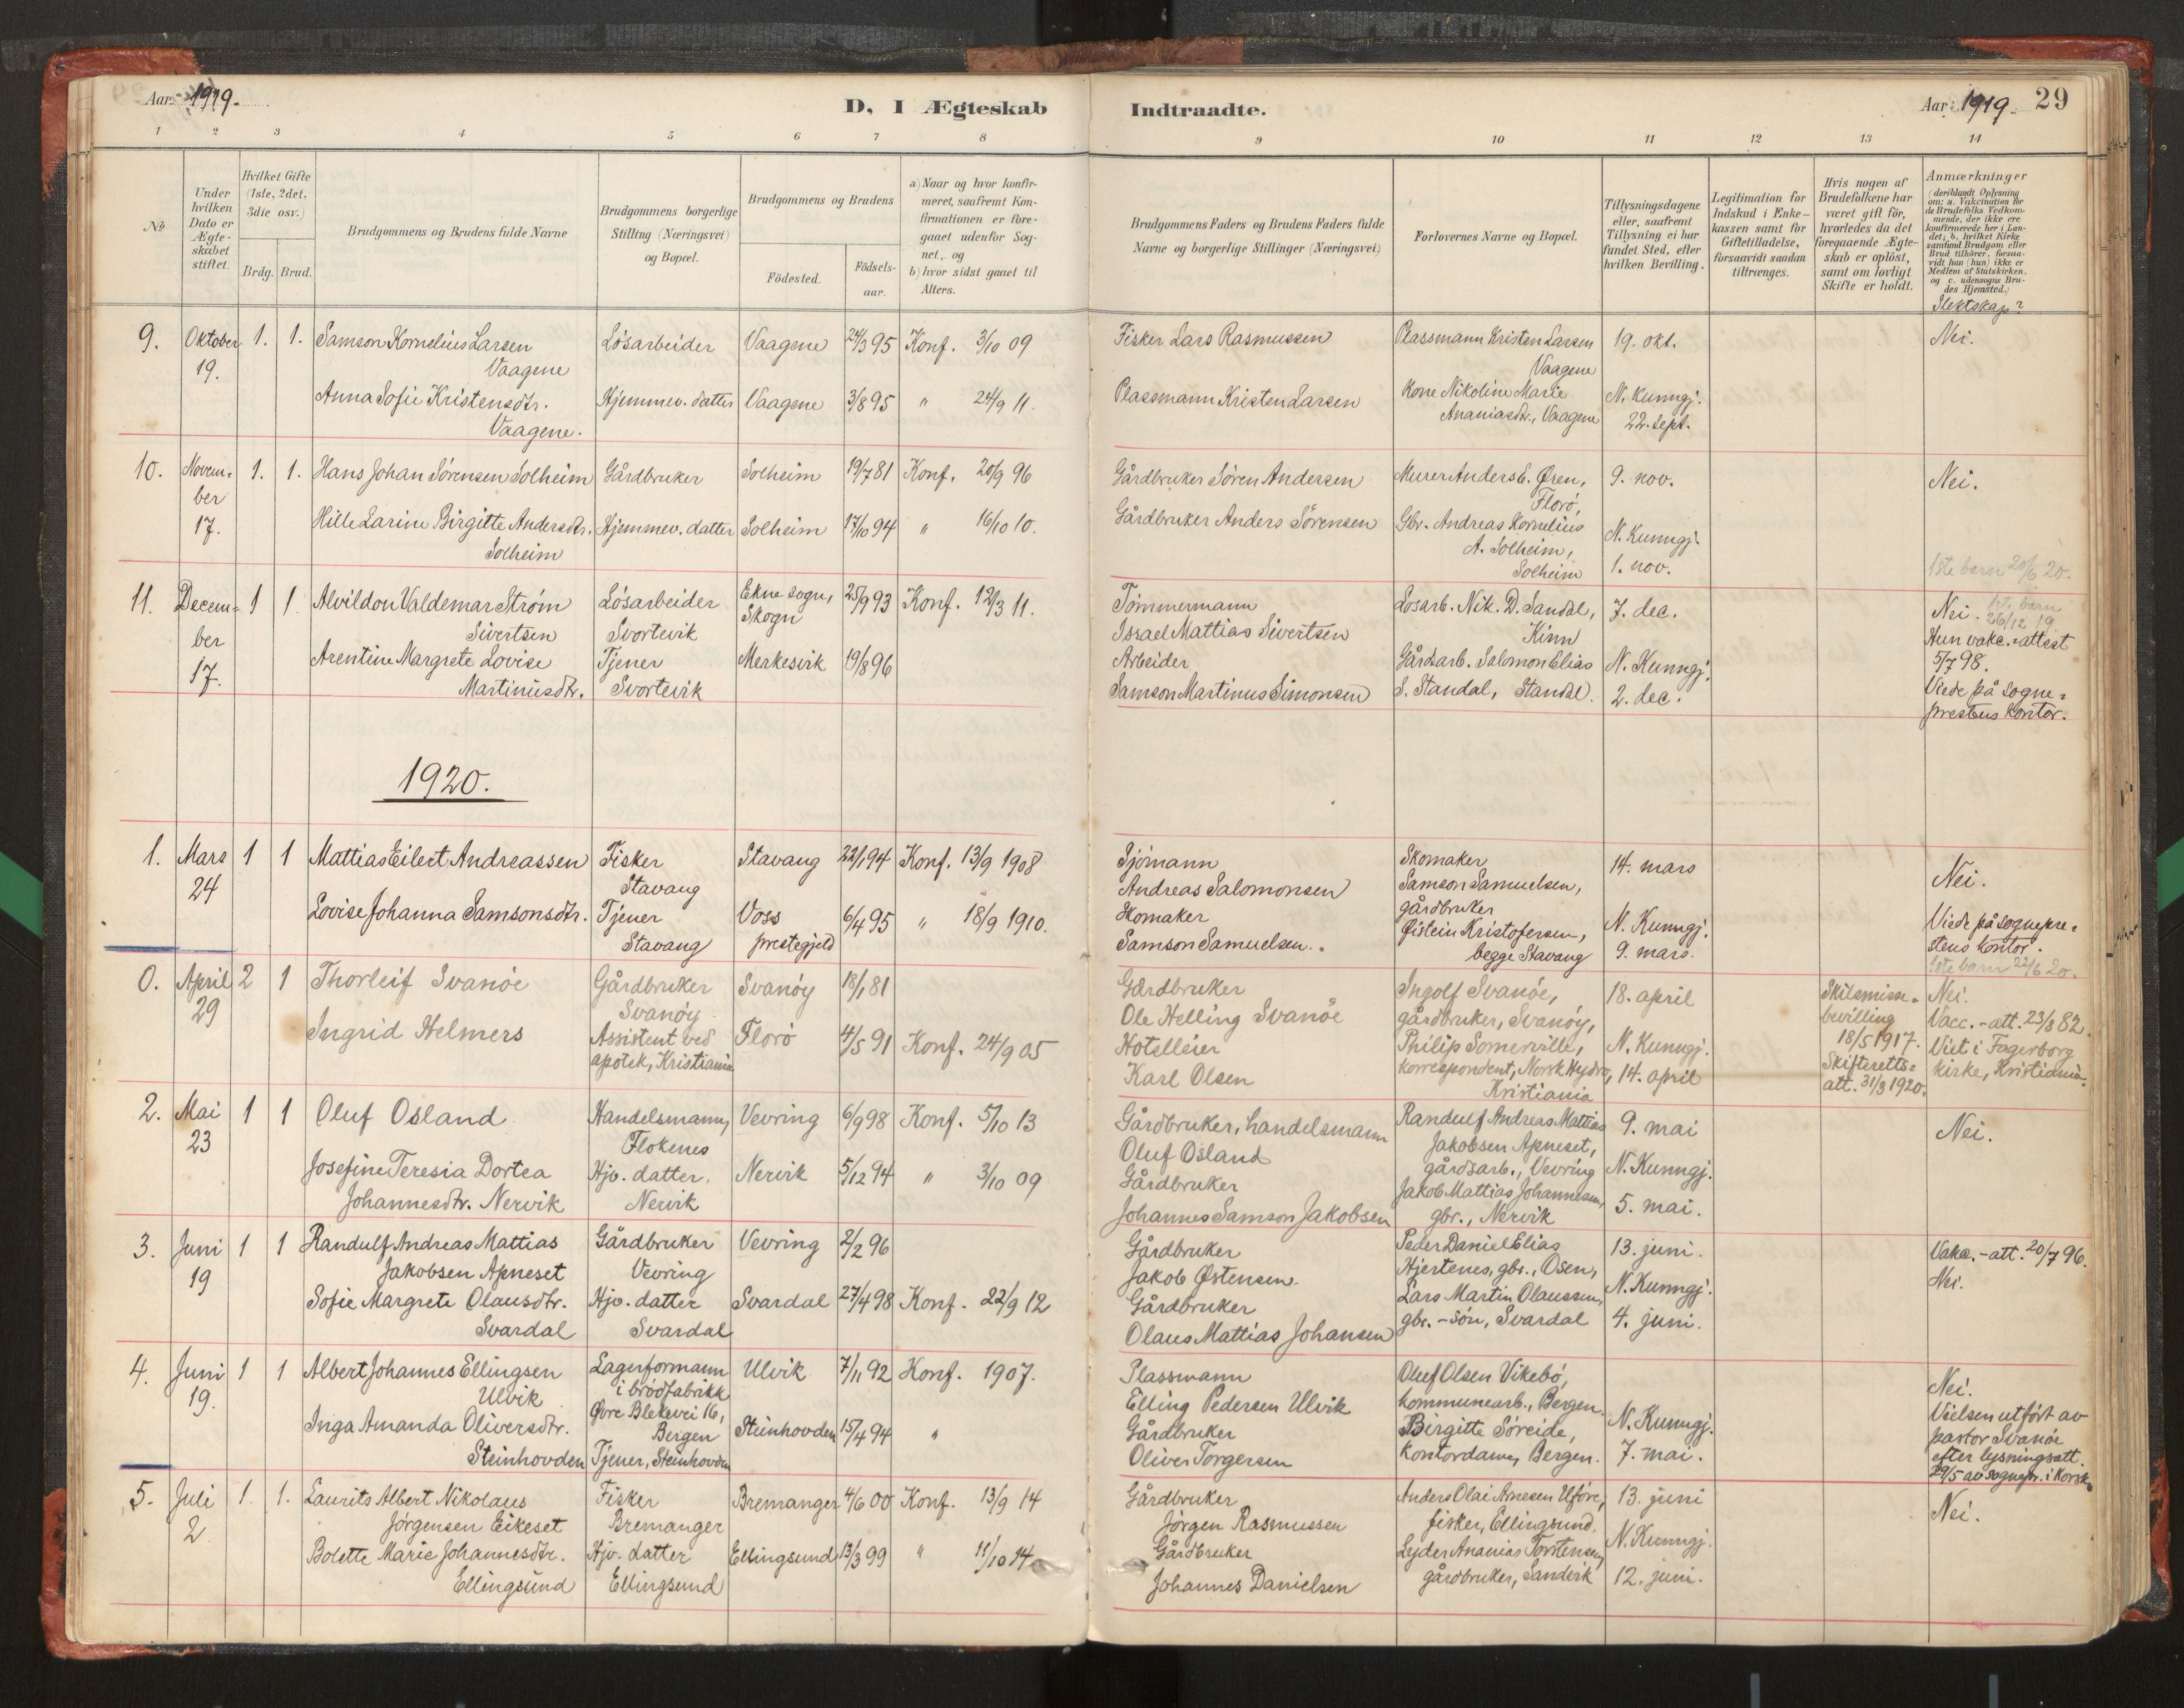 Aar: 1919.
D, I Ægteskab
Indtraadte.
Aar: 1919. 29
1 2 3 4 5 6 7 8
9 10 11 12 13 14
No
Under hvilken Dato er Ægteskabet stiftet.
Hvilket Gifte (1ste, 2det, 3die osv.)
Brdg. Brud.
Brudgommens og Brudens fulde Navne
Brudgommens borgerlige Stilling (Næringsvei) og Bopæl.
Brudgommens og Brudens
Födested.
Födselsaar.
a) Naar og hvor konfirmeret, saafremt Konfirmationen er foregaaet udenfor Sognet, og
b) hvor sidst gaaet til Alters.
Brudgommens Faders og Brudens Faders fulde Navne og borgerlige Stillinger (Næringsvei)
Forlovernes Navne og Bopæl.
Tillysningsdagene eller, saafremt Tillysning ei har fundet Sted, efter hvilken Bevilling.
Legitimation for Indskud i Enkekassen samt for Giftetilladelse, forsaavidt saadan tiltrænges.
Hvis nogen af Brudefolkene har været gift för, hvorledes da det foregaaende Ægteskab er oplöst, samt om lovligt Skifte er holdt.
Anmærkninger
(deriblandt Oplysning om: a. Vakcination for de Brudefolks Vedkommende, der ikke ere konfirmerede her i Landet; b. hvilket Kirkesamfund Brudgom eller Brud tilhörer, forsaavidt han (hun) ikke er Medlem af Statskirken, og c. udensogns Brudes Hjemsted.)
Slektskap?
9. Oktober 1. 1. Samson Kornelius Larsen Løsarbeider Vaagene 24/3 95 Konf. 3/10 09 Fisker Lars Rasmussen Plassmann Kristen Larsen 19. okt. Nei.
19. Vaagene Vaagene
Anna Sofie Kristensdtr. Hjemmev. datter Vaagene 3/8 95 " 24/9 11. Plassmann Kristen Larsen Kone Nikoline Marie N. Kunngj.
Vaagene. Ananiasdtr., Vaagene 22. sept.
10. Novem- 1. 1. Hans Johan Sørensen Solheim Gårdbruker Solheim 19/7 81 Konf. 20/9 96 Gårdbruker Søren Andersen Murer Anders E. Øren, 9. nov. Nei.
ber Florø,
17. Hille Larine Birgitte Andersdtr. Hjemmev. datter Solheim 17/10 94 " 16/10 10. Gårdbruker Anders Sørensen Gbr. Andreas Kornelius N. Kunngj.
Solheim A. Solheim,
Solheim 1. nov. 1ste barn 20/6 20.
11. Decem- 1 1. Alvildon Valdemar Strøm Løsarbeider Ekne sogn, 25/9 93 Konf. 12/3 11. Tømmermann Løsarb. Nik. D. Sandal, 7. dec. Nei. 1ste barn
ber Sivertsen Svortevik Skogn Israel Mattias Sivertsen Kinn 26/12 19.
Hun vakc. attest
17. Arentine Margrete Lovise Tjener Merkesvik 19/8 96 Arbeider Gårdsarb. Salomon Elias N. Kunngj. 5/7 98.
Martinusdtr. Svortevik Samson Martinus Simonsen S. Standal, Standal. 2. dec. Viede på sogne-
prestens kontor.
1920.
1. Mars 1 1 Mattias Eilert Andreassen Fisker Stavang 22/1 94 Konf. 13/9 1908 Sjømann Skomaker 14. mars Nei.
24 Stavang Andreas Salomonsen Samson Samuelsen,
Lovise Johanna Samsonsdtr. Tjener Voss 6/4 95 " 18/9 1910. Skomaker gårdbruker N. Kunngj. Viede på sognepre-
Stavang prestegjeld Samson Samuelsen. Øistein Kristofersen, 9. mars. stens kontor.
begge Stavang 1ste barn 22/6 20.
0. April 2 1 Thorleif Svanøe Gårdbruker Svanøy 18/1 81 Gårdbruker Ingolf Svanøe, 18. april Skilsmisse- Nei.
29 Svanøy Ole Helling Svanøe gårdbruker, Svanøy, bevilling Vacc.-att. 23/8 82.
Ingrid Helmers Assistent ved Florø 4/5 91 Konf. 24/9 05 Hotelleier Philip Somerville, N. Kunngj. 18/5 1917. Viet i Fagerborg
apotek, Kristiania Karl Olsen korrespondent, Norsk Hydro, 14. april Skifteretts- kirke, Kristiania.
Kristiania att. 31/3 1920.
2. Mai 1 1 Oluf Osland Handelsmann, Vevring 6/9 98 Konf. 5/10 13 Gårdbruker, handelsmann Randulf Andreas Mattias 9. mai Nei.
23 Flokenes Oluf Osland Jakobsen Apneset,
Josefine Teresia Dortea Hjv. datter, Nervik 5/12 94 " 3/10 09 Gårdbruker gårdsarb., Vevring N. Kunngj.
Johannesdtr. Nervik Nervik Johannes Samson Jakobsen Jakob Mattias Johannesen, 5. mai.
gbr., Nervik
3. Juni 1 1 Randulf Andreas Mattias Gårdbruker Vevring 2/2 96 Gårdbruker Peder Daniel Elias 13. juni. Vakc.-att. 20/7 96.
19 Jakobsen Apneset Vevring Jakob Østensen. Hjertenes, gbr., Osen, Nei.
Sofie Margrete Olausdtr. Hjv. datter Svardal 27/4 98 Konf. 22/9 12 Gårdbruker Lars Martin Olaussen, N. Kunngj.
Svardal Svardal Olaus Mattias Johansen gbr.-søn, Svardal 4. juni.
4. Juni 1 1 Albert Johannes Ellingsen Lagerformann Ulvik 7/11 92 Konf. 1907. Plassmann Oluf Olsen Vikebø, Nei.
19. Ulvik i brødfabrikk Elling Pedersen Ulvik kommunearb., Bergen. Vielsen utført av
Inga Amanda Oliversdtr. Øvre Blekevei 16, Bergen Steinhovden 15/4 94 " Gårdbruker Birgitte Søreide, N. Kunngj. pastor Svanøe
Steinhovden Tjener, Steinhovden Oliver Torgersen kontordame, Bergen. 7. mai. efter lysningsatt.
29/5 av sognepr. i Korsk.
5. Juli 1. 1. Laurits Albert Nikolaus Fisker Bremanger 4/6 00 Konf. 13/9 14 Gårdbruker Anders Olai Arnesen Uføre, 13. juni Nei.
2 Jørgensen Eikeset Bremanger Jørgen Rasmussen fisker, Ellingsund.
Bolette Marie Johannesdtr. Hjv. datter Ellingsund 13/3 99 " 11/10 14 Gårdbruker Lyder Ananias Torstensen, N. Kunngj.
Ellingsund Ellingsund Johannes Danielsen gårdbruker, Sandvik 12. juni.